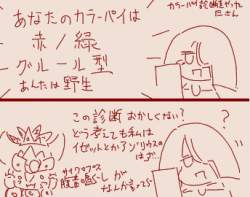 あなたのカラーパイは
赤/緑
グルール型
あんたは野生
カラーパイ診断
この診断おかしくない?
どう考えても私は
イゼットとかアゾリウスの
はず
サイクロプス
が
なんか言ってら
?